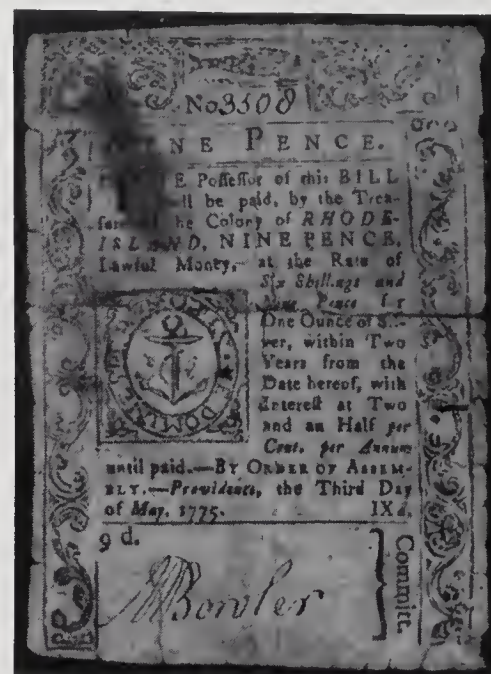 No 3508
NINE PENCE.
E Poſſeſſor of this BILL
ll be paid, by the Trea-
he Colony of RHODE-
ISLAND, NINE PENCE,
Lawful Money, at the Rate of
Six Shillings and
Nine Pence for
One Ounce of Sil-
ver, within Two
Years from the
Date hereof, with
Intereſt at Two
and an Half per
Cent. per Annum
until paid.—BY ORDER OF ASSEM-
BLY.—Providence, the Third Day
of May, 1775. IXd.
9 d.
Bowler
Committ.